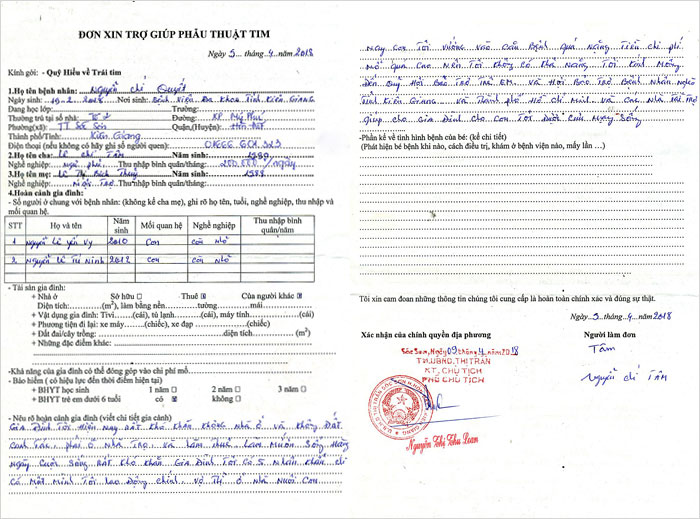 ĐƠN XIN TRỢ GIÚP PHẪU THUẬT TIM
Ngày 3 tháng 4 năm 2018
Kính gởi: - Quỹ Hiểu về Trái tim
1.Họ tên bệnh nhân: Nguyễn chí Quyết
Ngày sinh: 19-2-2018 Nơi sinh: Bệnh Viện Đa Khoa Tỉnh Kiên Giang
Đang học lớp: Trường:
Thường trú tại số nhà: Đường:
Phường(xã): TT Sóc Sơn Quận,(Huyện): Hòn Đất
Thành phố/Tỉnh: Kiên Giang
Điện thoại (nếu không có hãy ghi số người quen):
2.Họ tên cha: Năm sinh:
Nghề nghiệp: Thu nhập bình quân/tháng: 200.000/ngày
3.Họ tên mẹ: Lê Thị Bích Thuỷ Năm sinh:
Nghề nghiệp: Nội Trợ Thu nhập bình quân/tháng:
4.Hoàn cảnh gia đình:
- Số người ở chung với bệnh nhân: (không kể cha mẹ), ghi rõ họ tên, tuổi, nghề nghiệp, thu nhập và
mối quan hệ.
STT Họ và tên Năm sinh Mối quan hệ Nghề nghiệp Thu nhập bình quân/năm
1 Nguyễn Lê yến Vy 2010 Con còn Nhỏ
2 Nguyễn Lê Tú Ninh 2012 con còn Nhỏ
- Tài sản gia đình:
+ Nhà ở Sở hữu Thuê Của người khác
Diện tích:(m²), làm bằng nền tường: mái:
+ Vật dụng gia đình: Tivi (cái), tủ lạnh (cái), máy tính (cái)
+ Phương tiện đi lại: xe máy (chiếc), xe đạp (chiếc)
+ Đất đai/cây trồng: diện tích (m²)
+ Những đặc điểm khác:
-Khả năng của gia đình có thể đóng góp vào chi phí mổ
- Bảo hiểm ( có hiệu lực đến thời điểm hiện tại)
+ BHYT học sinh 1 năm 2 năm 3 năm
+ BHYT trẻ em dưới 6 tuổi có không
- Nêu rõ hoàn cảnh gia đình (viết chi tiết gia cảnh)
Gia Đình Tôi Hiện Nay Rất Khó Khăn Không Nhà ở và Không Đất
Canh Tác. phải ở Nhà Trọ và Làm thuê Làm Mướn Sống Hằng
ngày Cuộc Sống Rất Khó Khăn Gia Đình Tôi Có 5 Nhân Khẩu chỉ
Có Một Mình Tôi Lao Động chính vợ Thì ở Nhà Nuôi Con
Nay Con Tôi vướng vào Căn Bệnh Quá Nặng Tiền chi phí
Mổ quá Cao Nên Tôi Không Có Khả Năng Tôi Kính Mong
Đến Quỹ Hội Bảo Trợ Trẻ Em và Hội Bảo Trợ Bệnh Nhân Nghèo
Tỉnh Kiên Giang và Thành phố Hồ chí Minh và Các Nhà Tài Trợ
giúp cho Gia Đình cho Con Tôi Được Cứu Mạng Sống
-Phần kể về tình hình bệnh của bé: (kể chi tiết)
(Phát hiện bé bệnh khi nào, cách điều trị, khám ở bệnh viện nào, mấy lần …)
Tôi xin cam đoan những thông tin chúng tôi cung cấp là hoàn toàn chính xác và đúng sự thật.
Ngày 3 tháng 4 năm 2018
Xác nhận của chính quyền địa phương Người làm đơn
Sóc Sơn, Ngày 09 tháng 4 năm 2018
TM.UBND.THỊ TRẤN
KT. CHỦ TỊCH
PHÓ CHỦ TỊCH
Tâm
Nguyễn chí Tâm
Nguyễn Thị Thu Loan